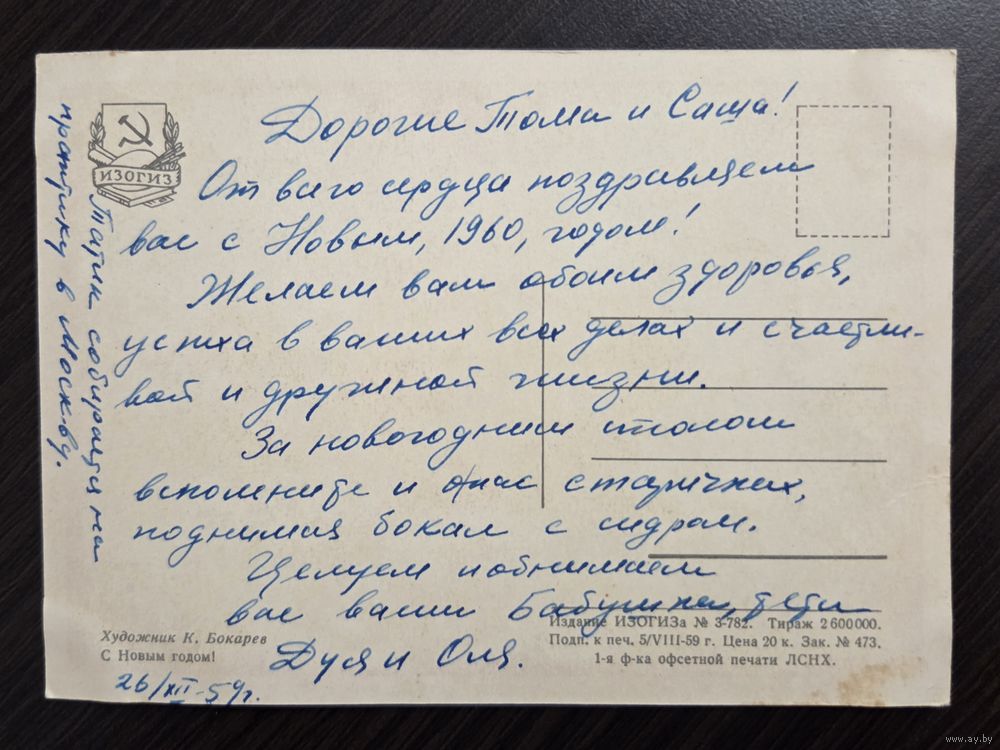 ИЗОГИЗ
Дорогие Тома и Саша!
От всего сердца поздравляем
вас с Новым, 1960, годом!
Желаем вам обоим здоровья,
успеха в ваших всех делах и счастли-
вой и дружной жизни.
За новогодним столом
вспомните и о нас старичках,
поднимая бокал с сидром.
Целуем и обнимаем
вас ваши Бабушка, тети
Дуся и Оля.
26/XII-59г.
Татик собирается на
практику в Москву.
Художник К. Бокарев
С Новым годом!
Издание ИЗОГИЗа № 3-782. Тираж 2 600 000.
Подп. к печ. 5/VIII-59 г. Цена 20 к. Зак. № 473.
1-я ф-ка офсетной печати ЛСНХ.
www.ay.by